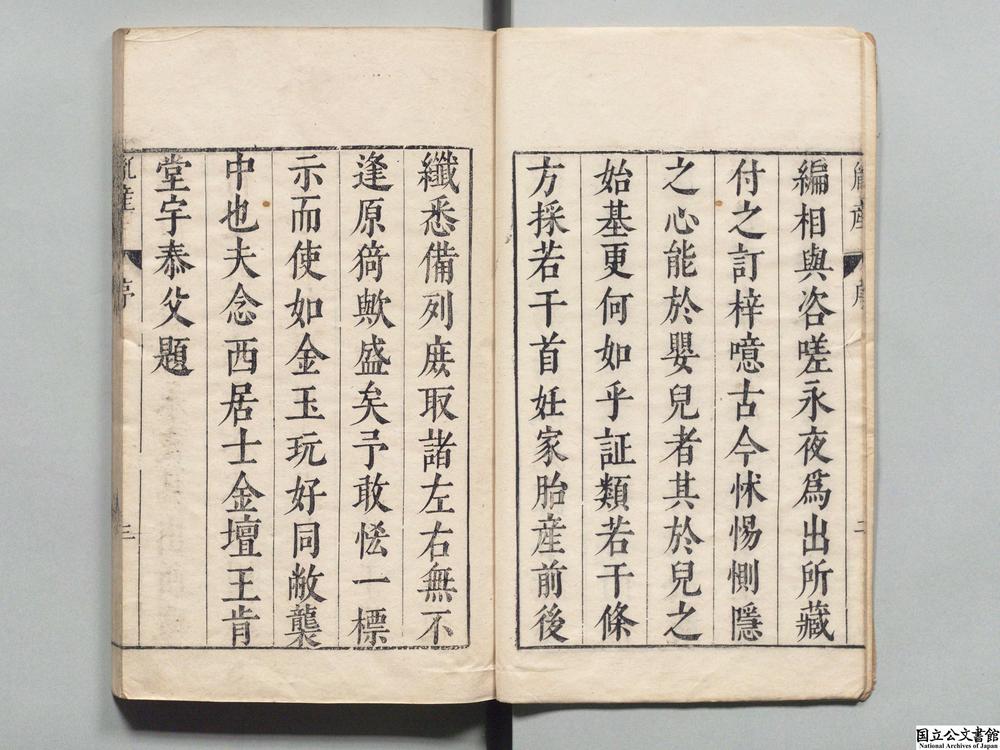 編相與咨嗟永夜爲出所藏
付之訂梓噫古今怵惕惻隱
之心能於嬰兒者其於兒之
始基更何如乎証類若干條
方採若干首妊家胎産前後
纖悉備列庶取諸左右無不
逢原猗歟盛矣予敢恡一標
示而使如金玉玩好同敝襲
中也夫念西居士金壇王肯
堂宇泰父題
三
国立公文書館
National Archives of Japan